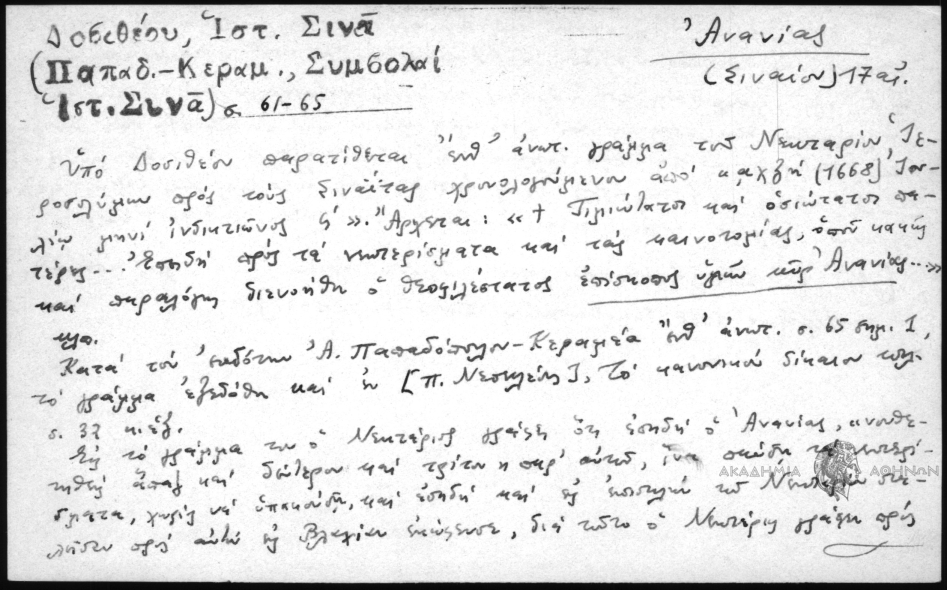 Δοσιθέου, Ἱστ. Σινᾶ
(Παπαδ.-Κεραμ., Συμβολαί
Ἱστ. Σινᾶ) σ. 61-65
Ἀνανίας
(Σιναίου) 17 αἰ.
Ὑπό Δοσιθέου παρατίθεται ἔνθ' ἀνωτ. γράμμα τοῦ Νεκταρίου Ἱε-
ροσολύμων πρός τούς Σιναΐτας χρονολογούμενον ἀπό (1668) Ἰου-
λίῳ μηνί ἰνδικτιῶνος ς΄». Ἄρχεται: «† Τιμιώτατοι καί ὁσιώτατοι πα-
τέρες... Ἐπειδή πρός τά νεωτερίσματα καί τάς καινοτομίας, ὁποῦ κακῶς
καί παραλόγως διενοήθη ὁ θεοφιλέστατος ἐπίσκοπος ὑμῶν κύρ Ἀνανίας...»
κλπ.
Κατά τόν ἐκδότην Ἀ. Παπαδόπουλον-Κεραμέα ἔνθ' ἀνωτ. σ. 65 σημ. 1,
τό γράμμα ἐξεδόθη καί ἐν [Π. Νεοκλέους], Τό κανονικόν δίκαιον κλπ.
σ. 32 κ.ἑξ.
Εἰς τό γράμμα του ὁ Νεκτάριος γράφει ὅτι ἐπειδή ὁ Ἀνανίας, ἀνουθε-
τήθη ἅπαξ καί δεύτερον καί τρίτον παρ' αὐτοῦ, ἵνα τά νεωτερί-
σματα, χωρίς νά ὑπακούσῃ, καί ἐπειδή καί εἰς ἐπιστολήν τοῦ στα-
λεῖσαν πρός αὐτόν εἰς Βλαχίαν, διά τοῦτο ὁ Νεκτάριος γράφει πρός
ΑΚΑΔΗΜΙΑ ΑΘΗΝΩΝ